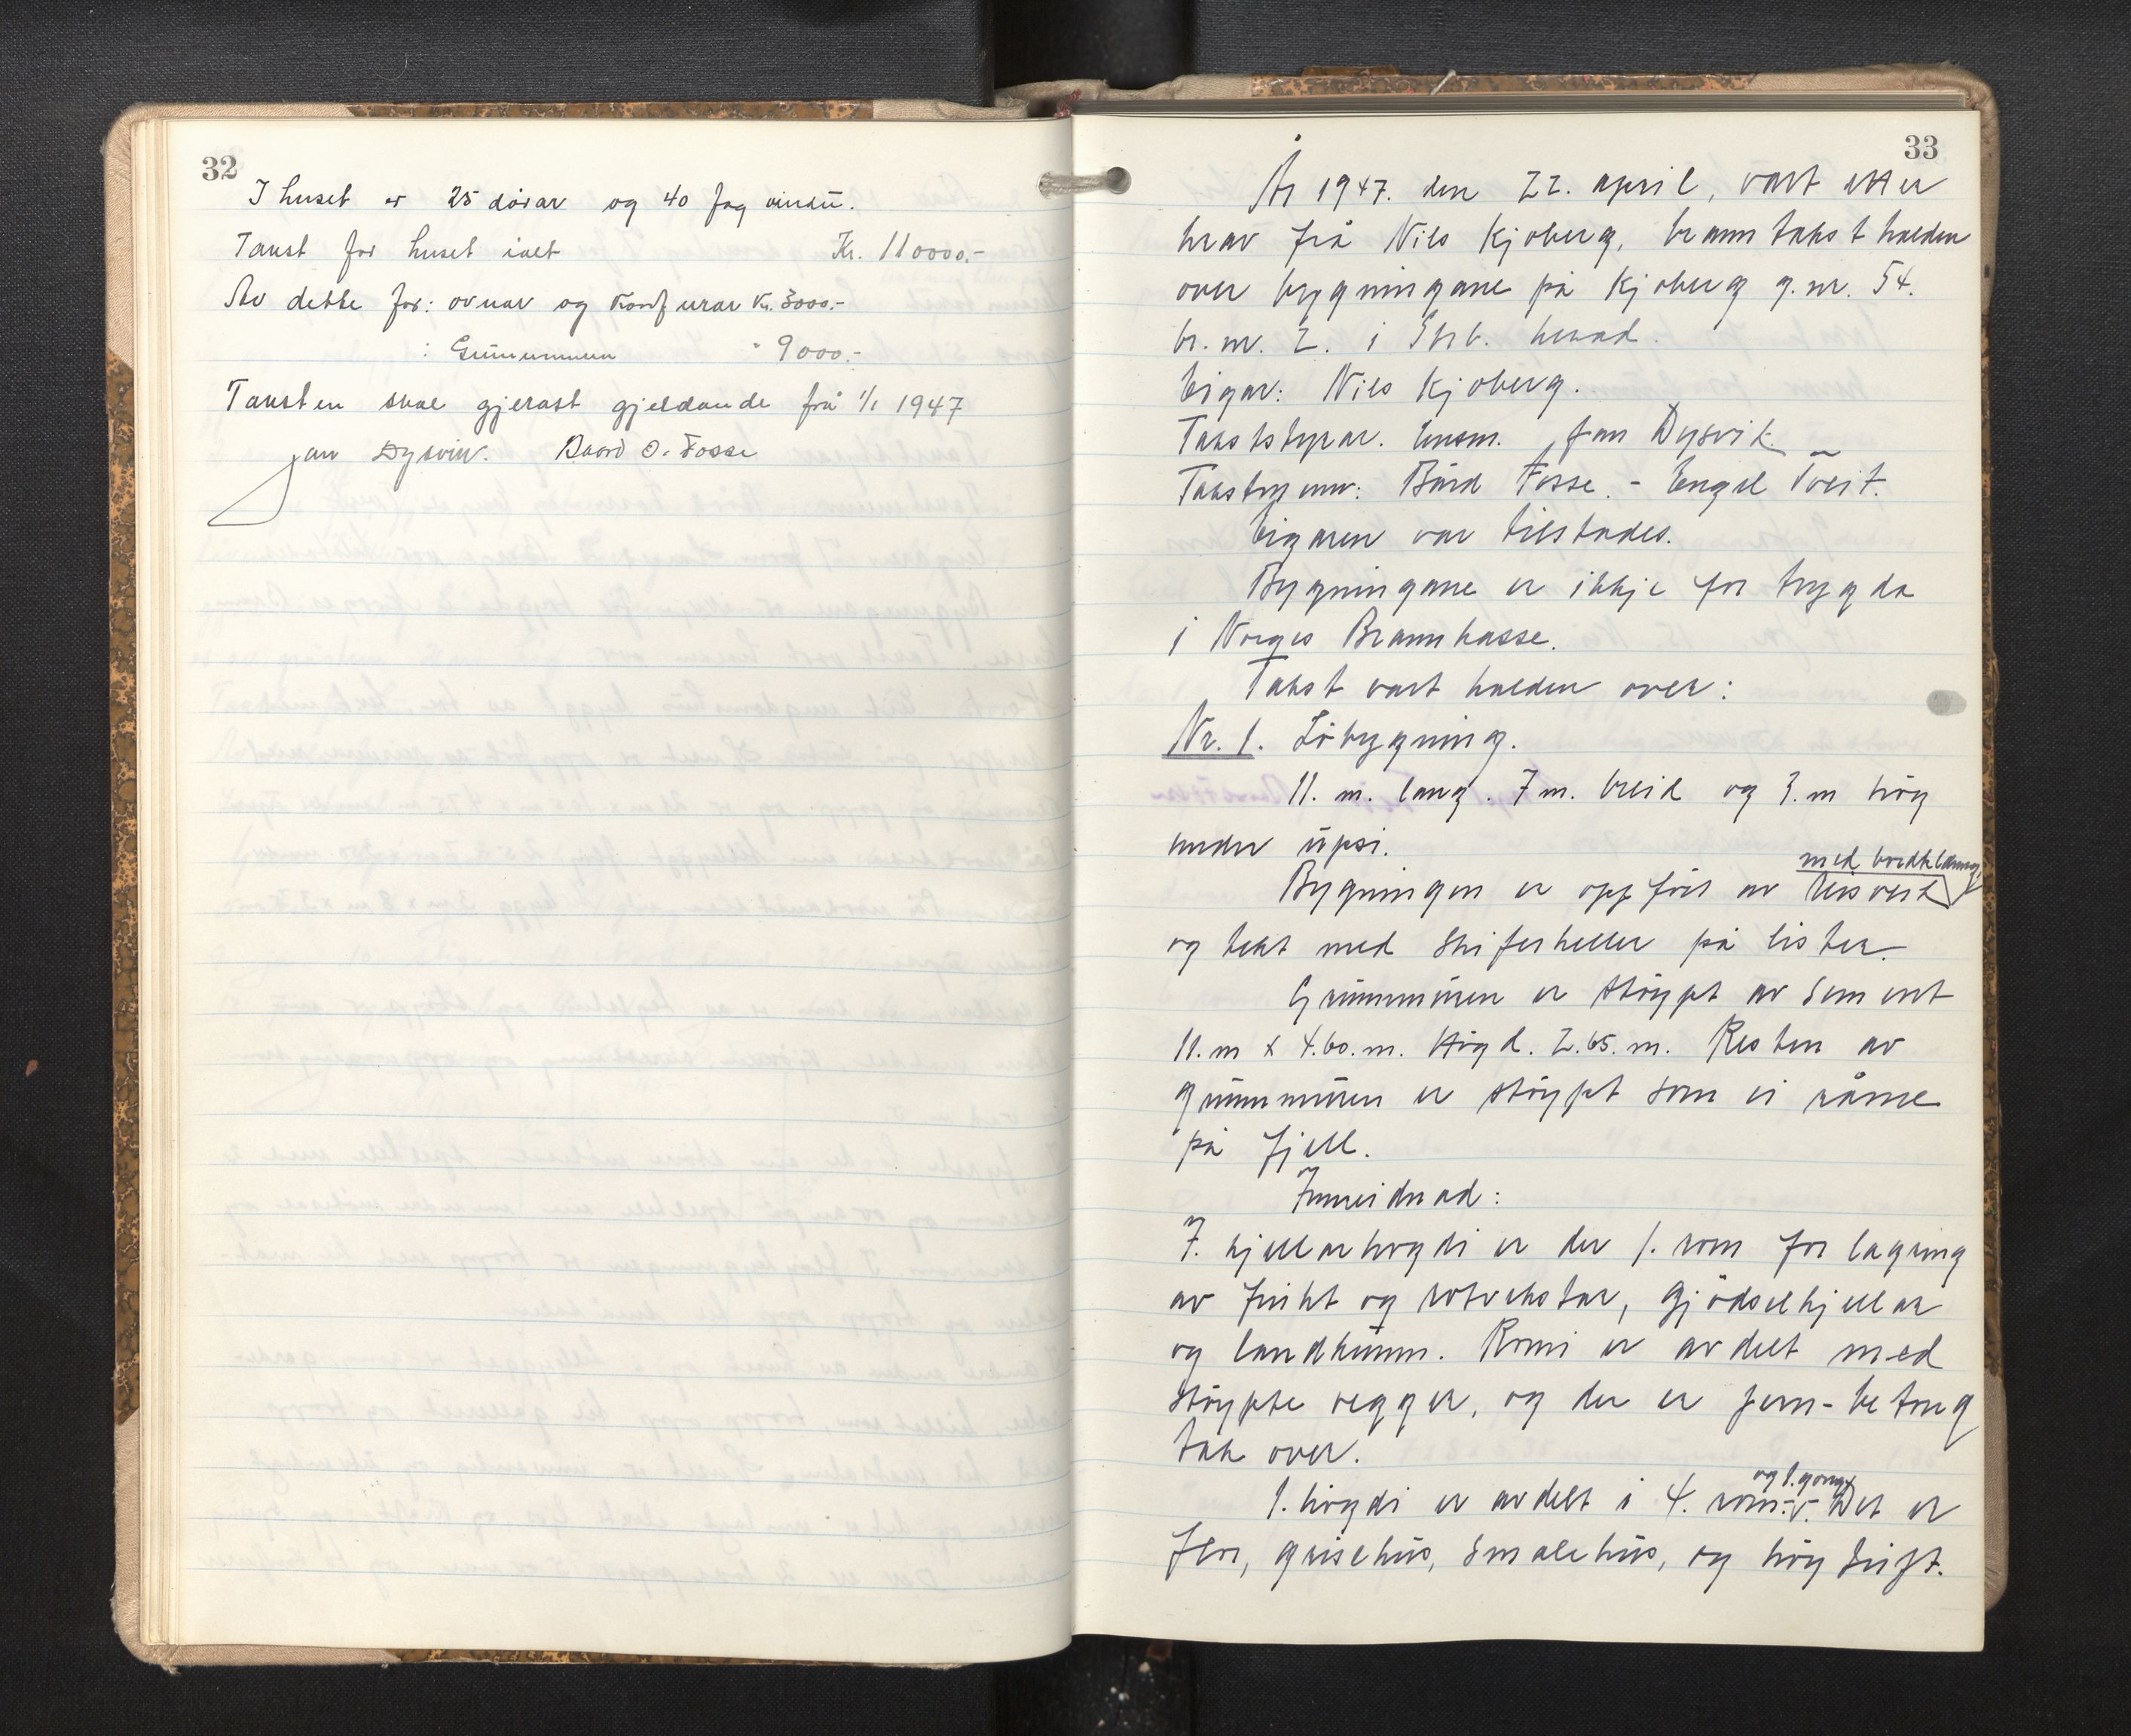 32
I huset er 25 dörar og 40 fag vindu.
Takst for huset ialt Kr. 110000.-
Av dette for: ovnar og komfurar Kr. 3000.-
: Grunnmuren " 9000.-
Taksten skal gjerast gjeldande frå 1/1 1947
Jan Dysvik. Baard O. Fosse
33
År 1947. den 22. april, vart etter
krav frå Nils Kjoberg, branntakst halden
over bygningane på Kjoberg g.nr. 54.
br. nr. 2. i Str b. herad.
Eigar: Nils Kjoberg.
Takststyrar. lensm. Jan Dysvik
Takstmenn: Bård Fosse. - Engel Tveit.
Eigaren var tilstades.
Bygningane er ikkje for trygda
i Norges Brannkasse.
Takst vart halden over:
Nr. 1. Löbygning.
11. m. lang. 7 m. breid og 3. m hög
under upsi.
med bordkledning,
Bygningen er oppfört av reisverk
og tekt med skiferheller på lister.
Grunnmuren er stöypt av sement
11. m x 4.60. m. Högd. 2.65. m. Resten av
grunnmuren er stöypt som ei råme
på fjell.
Innreidnad:
I. kjellarhögdi er der 1. rom for lagring
av frukt og rotvekstar, gjödselkjellar
og landkumm. Romi er avdelt med
stöypte vegger, og der er jern-betong
tak over.
og 1. gong
1. högdi er avdelt i 4. rom. Det er
flor, grisehus, smalehus, og höytrift.